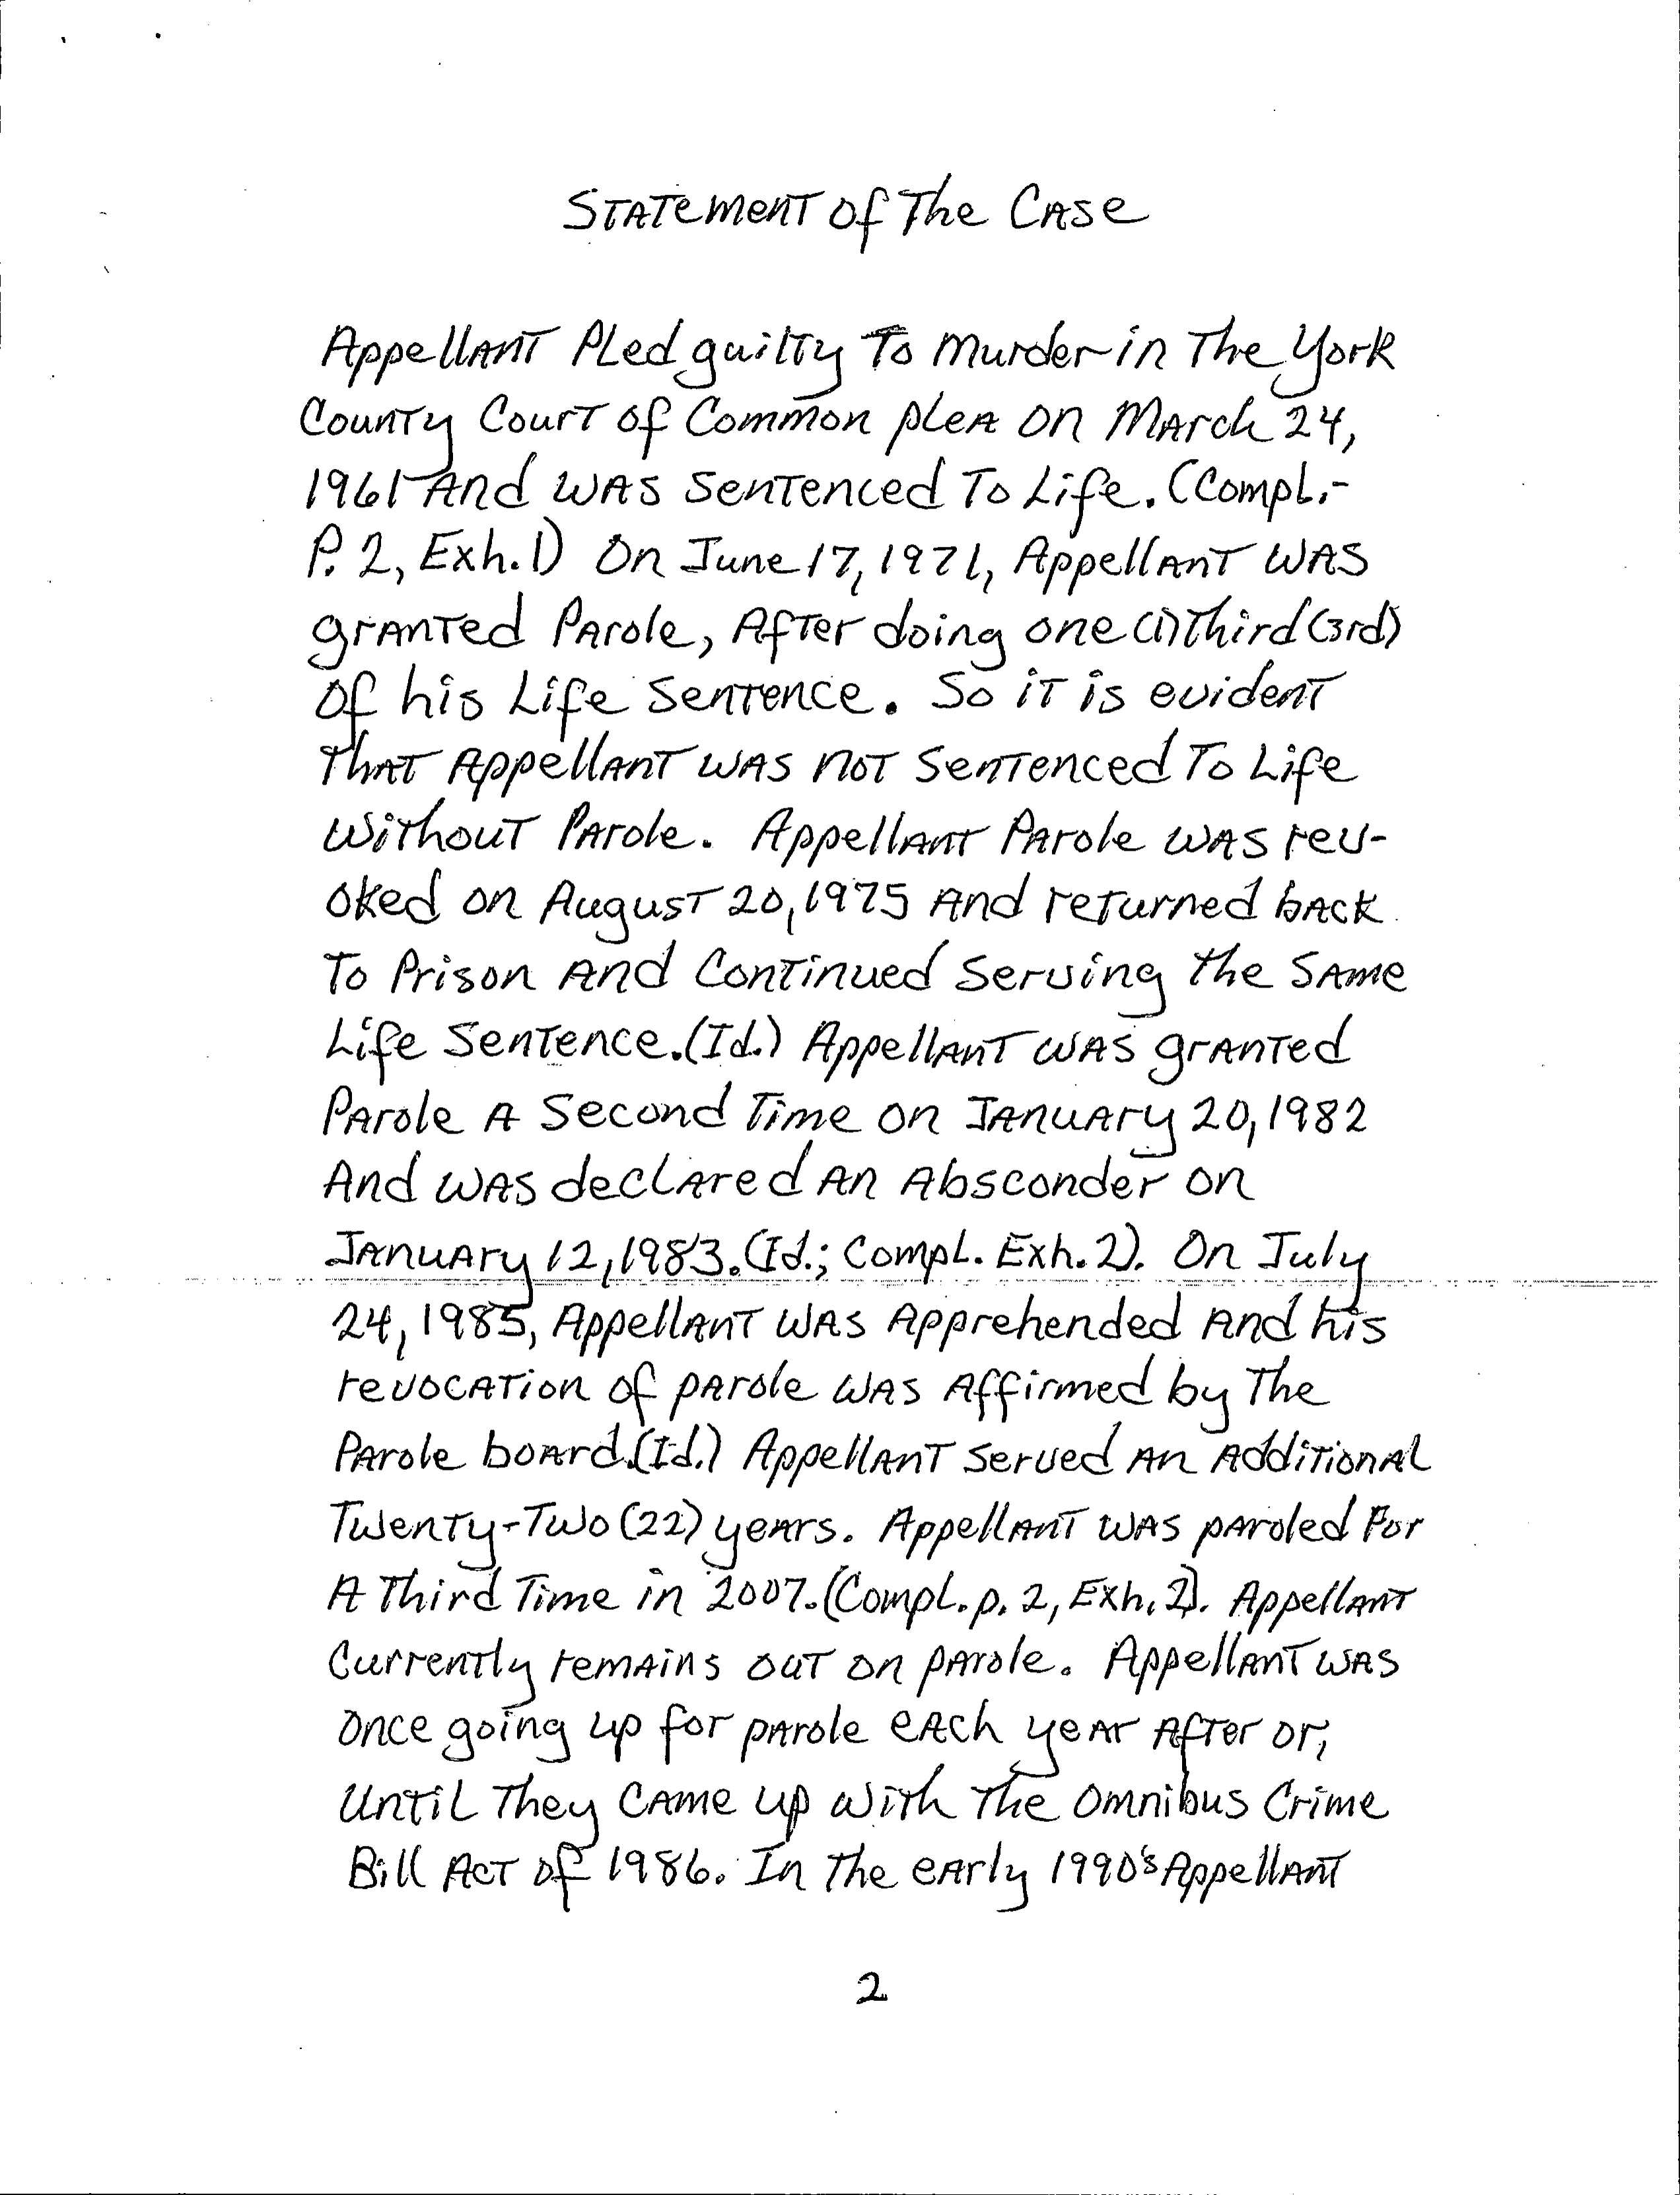 Statement of The Case
Appellant Pled guilty To Murder in The York
County Court of Common plea on March 24,
1961 And was sentenced To Life. (Compl.-
P. 2, Exh. 1) On June 17, 1971, Appellant was
granted Parole, After doing one (1) Third (3rd)
of his Life Sentence. So it is evident
that Appellant was not sentenced To Life
Without Parole. Appellant Parole was rev-
oked on August 20, 1975 And returned back
To Prison And Continued Serving the Same
Life Sentence. (Id.) Appellant was granted
Parole A Second Time on January 20, 1982
And was declared An Absconder on
January 12, 1983. (Id.; Compl. Exh. 2). On July
24, 1985, Appellant was Apprehended And his
revocation of parole was Affirmed by The
Parole board. (Id.) Appellant served An Additional
Twenty-Two (22) years. Appellant was paroled For
A Third Time in 2007. (Compl. p. 2, Exh. 2). Appellant
Currently remains out on parole. Appellant was
once going up for parole each year After or,
Until They Came up with The Omnibus Crime
Bill Act of 1986. In The early 1990's Appellant
2